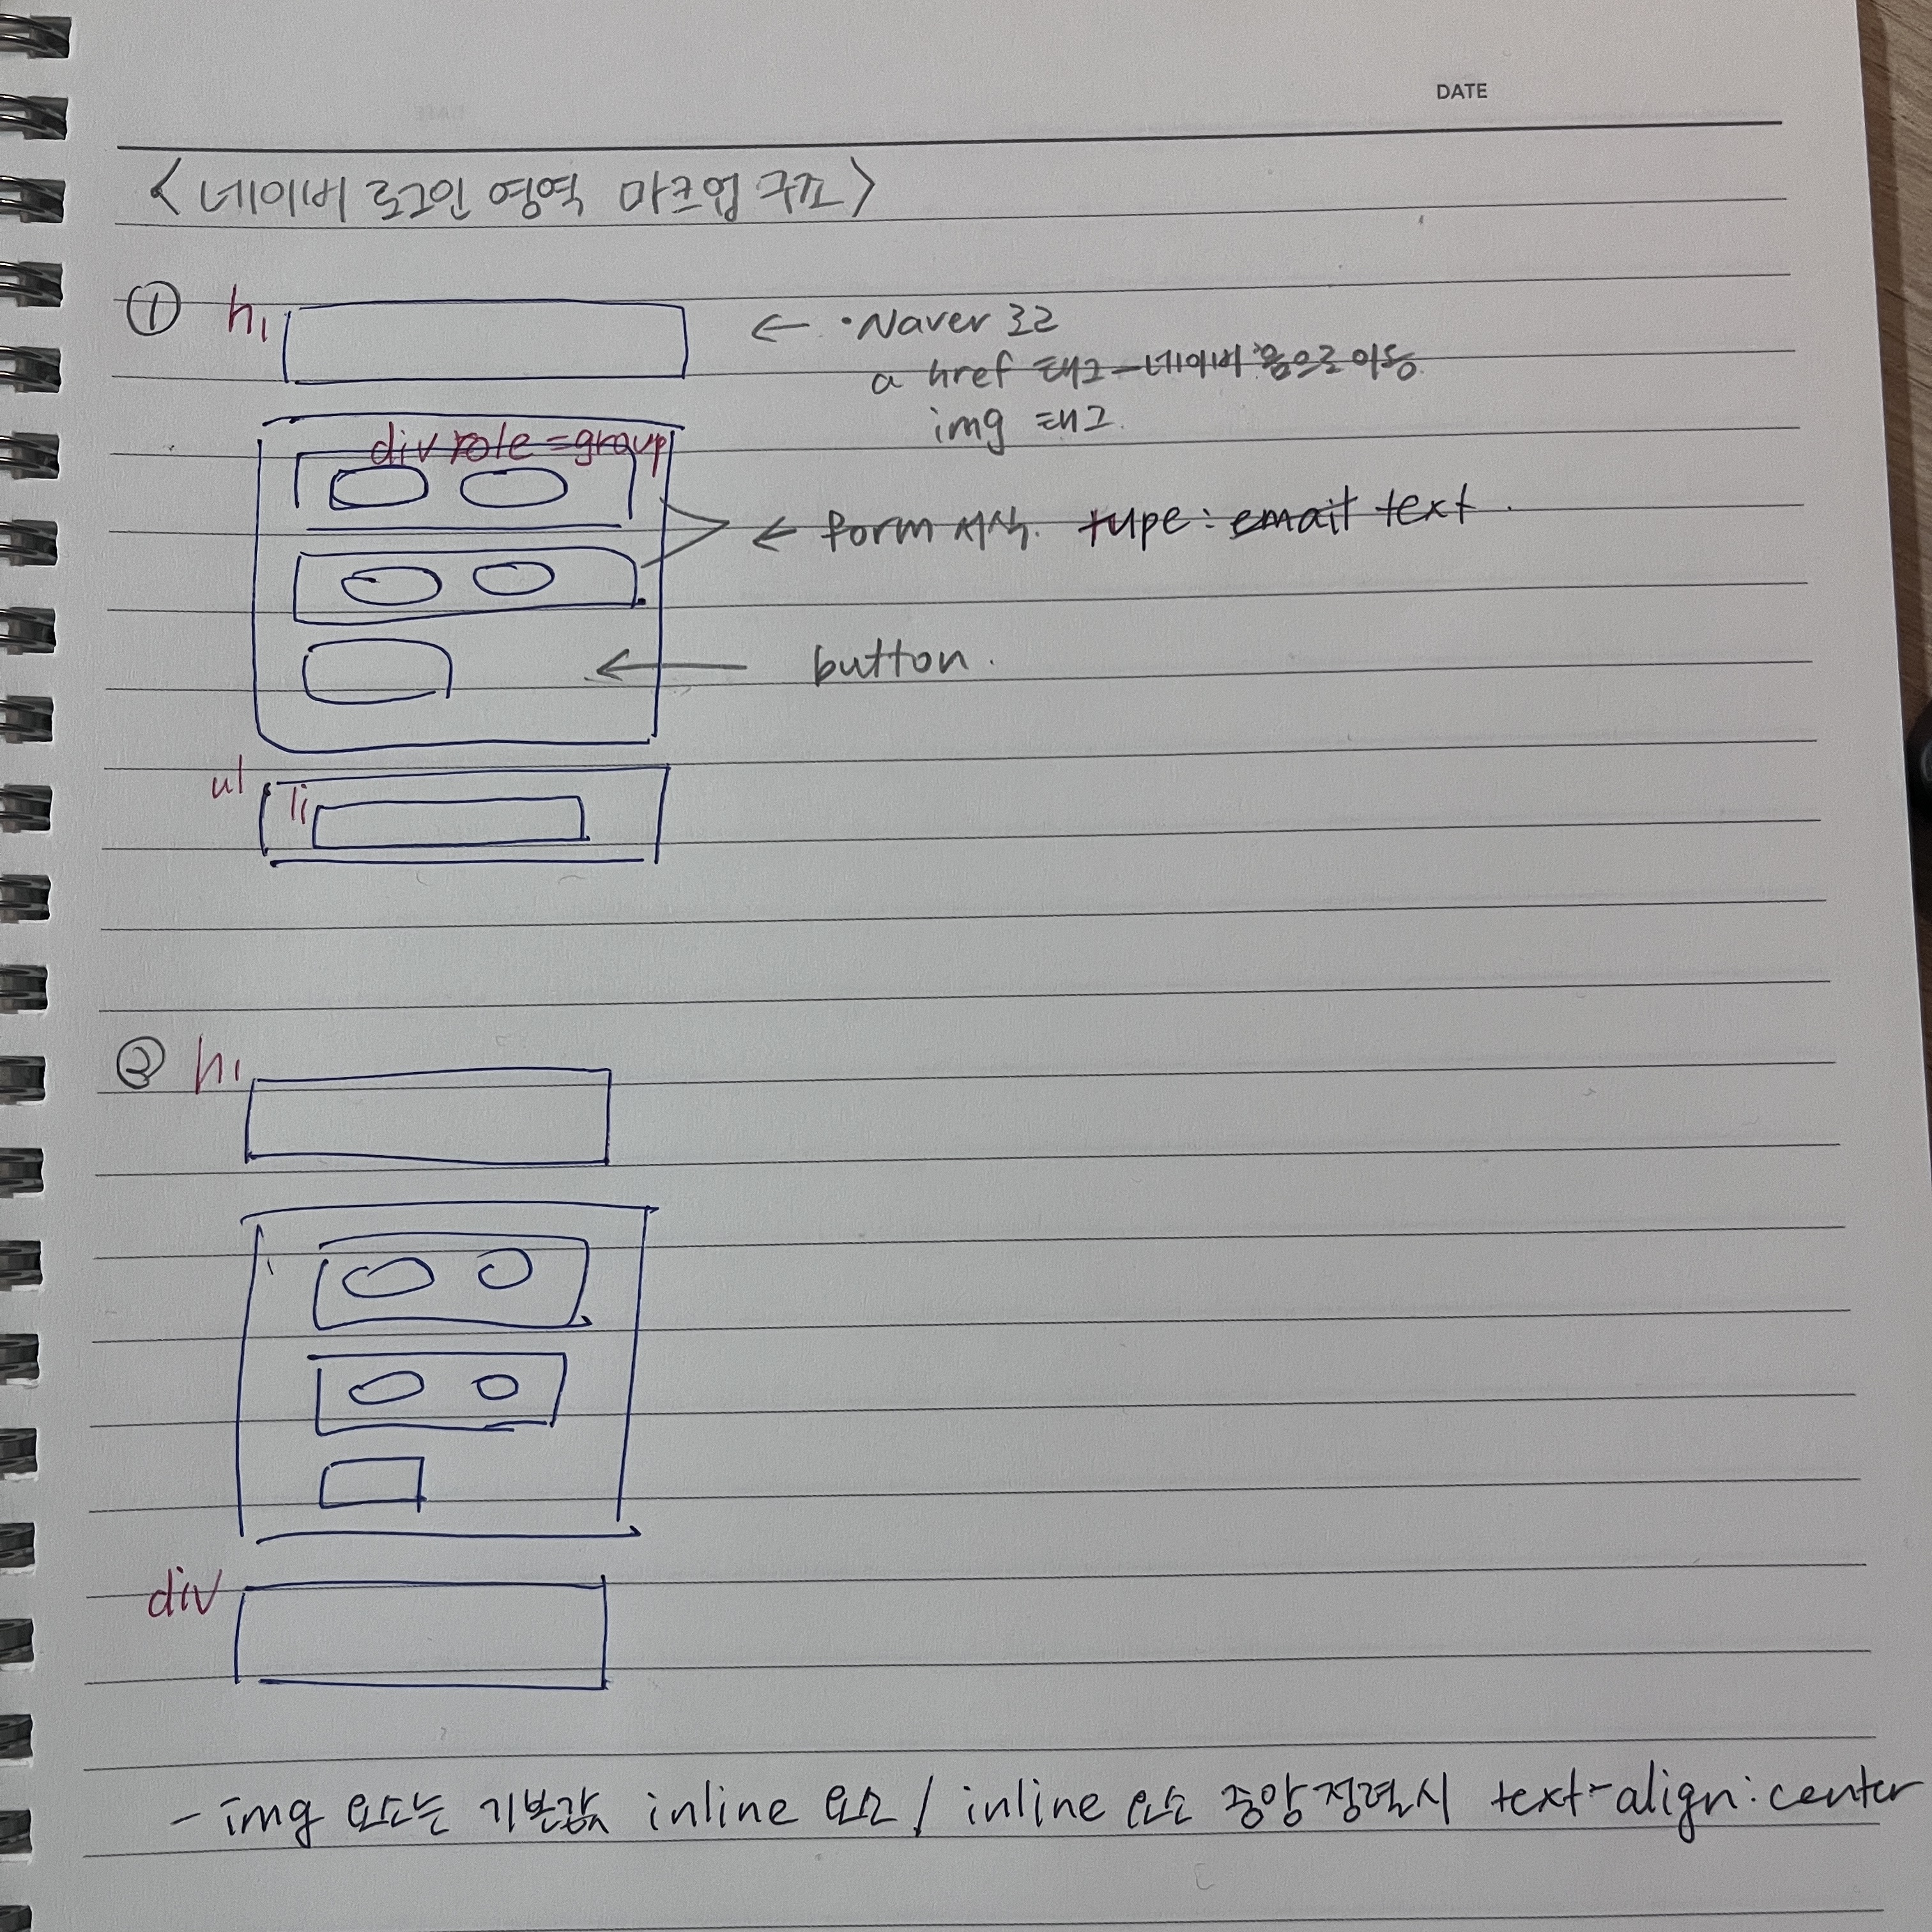 DATE
<네이버 로그인 영역 마크업 구조>
① h1
← ·Naver 로고
a href 태그 - 네이버 홈으로 이동
img 태그.
div role=group
← form 서식. type: email text.
← button.
ul
li
② h1
div
- img 요소는 기본값 inline 요소 / inline 요소 중앙정렬시 text-align:center